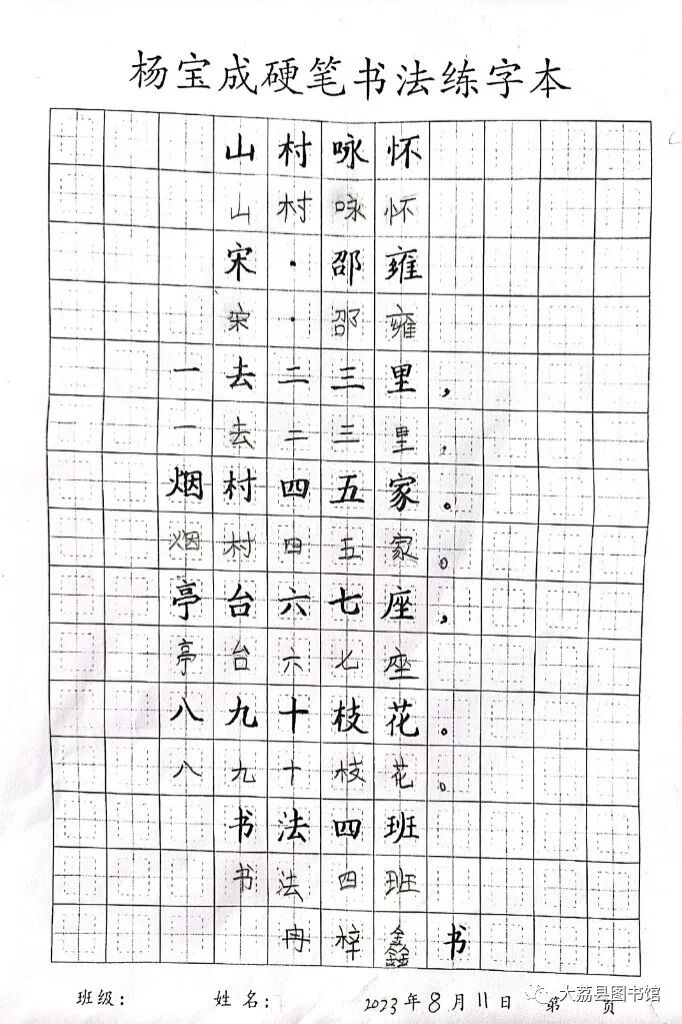 杨宝成硬笔书法练字本
山村咏怀
山村咏怀
宋·邵雍
宋·邵雍
一去二三里，
一去二三里，
烟村四五家。
烟村四五家。
亭台六七座，
亭台六七座
八九十枝花。
八九十枝花。
书法四班
书法四班
冉梓鑫书
班级： 姓名： 2023年8月11日 第 页
大荔县图书馆